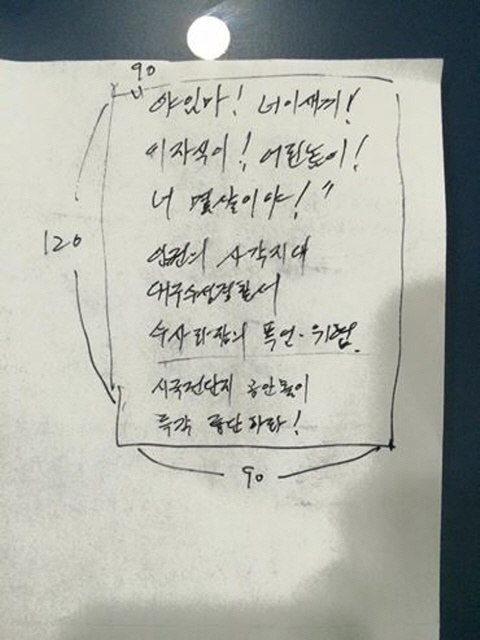 90
"야 임마! 너 이새끼!
이자식이! 어린놈이!
너 몇살이야!"
120
인권의 사각지대
대구수성경찰서
수사과장의 폭언·위협
시국전단지 공안몰이
즉각 중단하라!
90